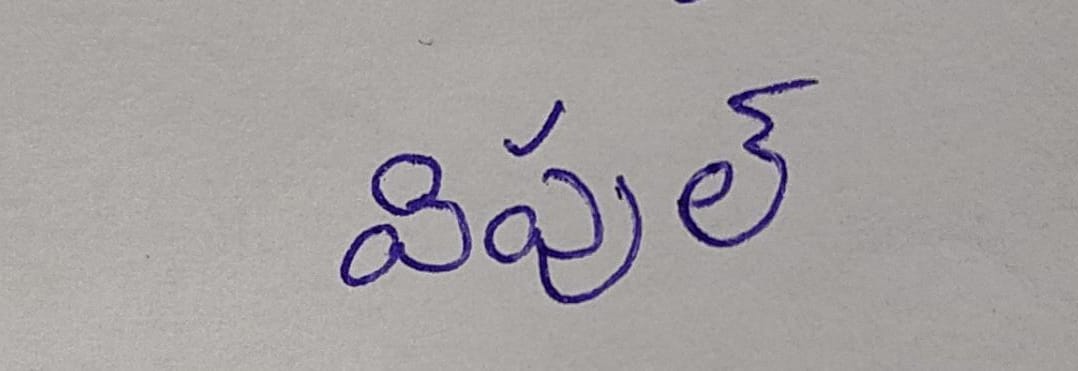 విపుల్